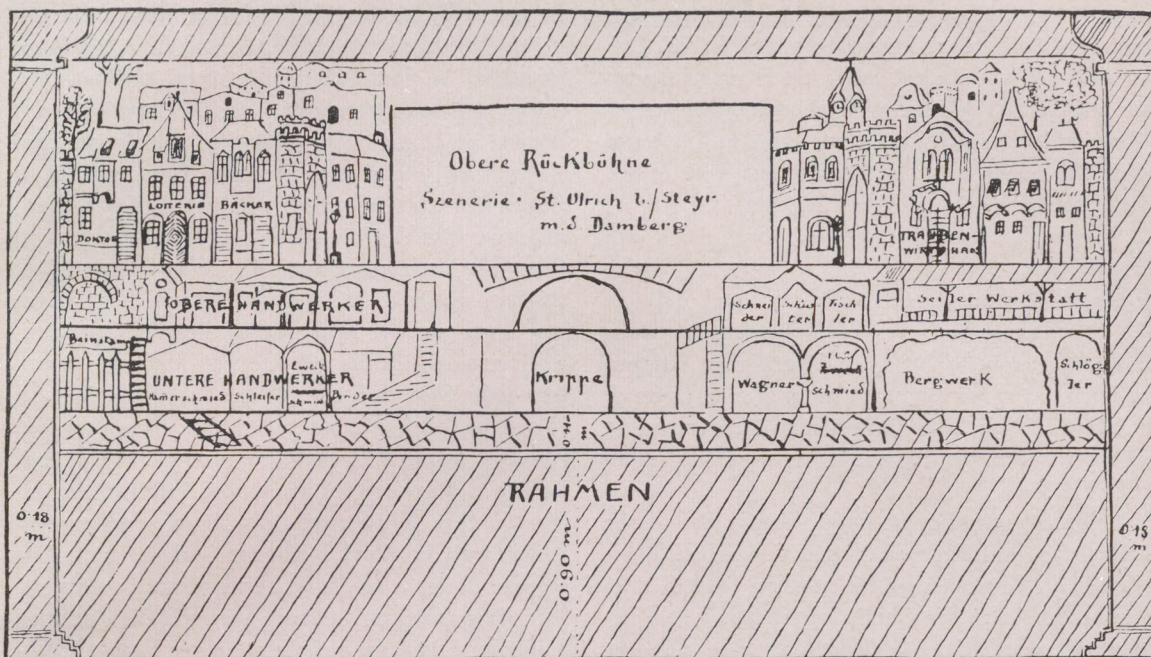 Obere Rückbühne
Szenerie · St. Ulrich b./Steyr
m. d Damberg
DOKTOR
LOTTERIE
BÄCKAR
TRAUBEN-
WIRTSHAUS
OBERE HANDWERKER
Schnei
der
Schus
ter
Tisch
ler
Seiler Werkstatt
UNTERE HANDWERKER
Hamerschmied
Schleifer
Zweck
schmied
Binder
Krippe
Wagner
schmied
Bergwerk
Schlög-
ler
RAHMEN
0·18
m
0.90 m
0·18
m